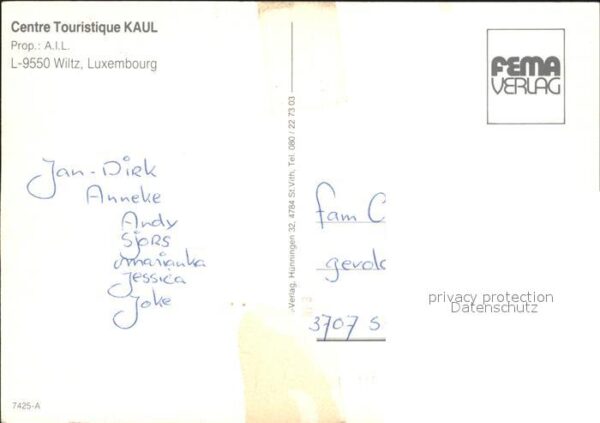 Centre Touristique KAUL
Prop.: A.I.L.
L-9550 Wiltz, Luxembourg
FEMA
VERLAG
-Verlag, Hünningen 32, 4784 St.Vith, Tel. 080 / 22 73 03
Jan-Dirk
Anneke
Andy
Sjors
Marianka
Jessica
Joke
fam C
gerda
3707 S
privacy protection
Datenschutz
7425-A